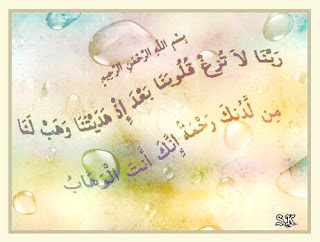 بِسْمِ اللهِ الرَّحْمٰنِ الرَّحِيمِ
رَبَّنَا لاَ تُزِغْ قُلُوبَنَا بَعْدَ إِذْ هَدَيْتَنَا وَهَبْ لَنَا
مِن لَّدُنكَ رَحْمَةً إِنَّكَ أَنتَ الْوَهَّابُ
S.K